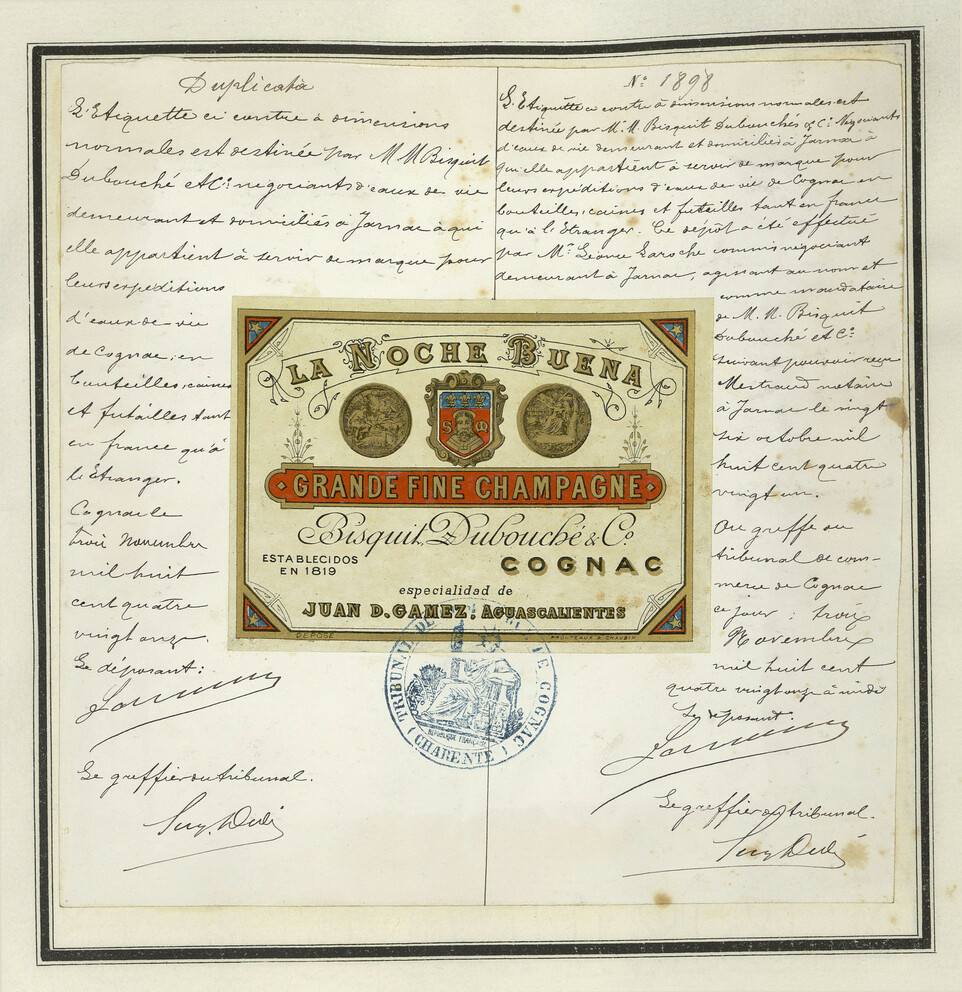 Duplicata
L'Etiquette ci contre à dimensions
normales est destinée par M M Bisquit
Dubouché et Cº negociants d'eaux de vie
demeurant et domiciliés à Jarnac à qui
elle appartient à servir de marque pour
leurs expeditions
d'eaux de vie
de Cognac, en
bouteilles, caisses
et futailles tant
en france qu'à
l'Etranger.
Cognac le
trois Novembre
mil huit
cent quatre
vingt onze.
Le déposant:
Le greffier du tribunal.
Nº 1898
L'Etiquette ci contre à dimensions normales est
destinée par M. M. Bisquit Dubouché & Cº Negociants
d'eaux de vie demeurant et domiciliés à Jarnac à
qui elle appartient à servir de marque pour
leurs expéditions d'eaux de vie de Cognac en
bouteilles, caisses et futailles tant en france
qu'à l'Etranger. Ce dépôt a été effectué
par Mr Léonce Laroche commis negociant
demeurant à Jarnac, agissant au nom et
comme mandataire
de M. M. Bisquit
Dubouché et Cº
suivant pouvoir reçu
Mestraud notaire
à Jarnac le vingt
six octobre mil
huit cent quatre
vingt un.
Au greffe du
tribunal de com-
merce de Cognac
ce jour: trois
Novembre
mil huit cent
quatre vingt onze à midi
Le déposant.
Le greffier du tribunal.
LA NOCHE BUENA
S M
GRANDE FINE CHAMPAGNE
Bisquit, Dubouché & Cº
ESTABLECIDOS
EN 1819
COGNAC
especialidad de
JUAN D. GAMEZ. AGUASCALIENTES
DÉPOSÉ
PROUTEAUX & CHAUBIN
TRIBUNAL DE COGNAC
REPUBLIQUE FRANÇAISE
(CHARENTE)